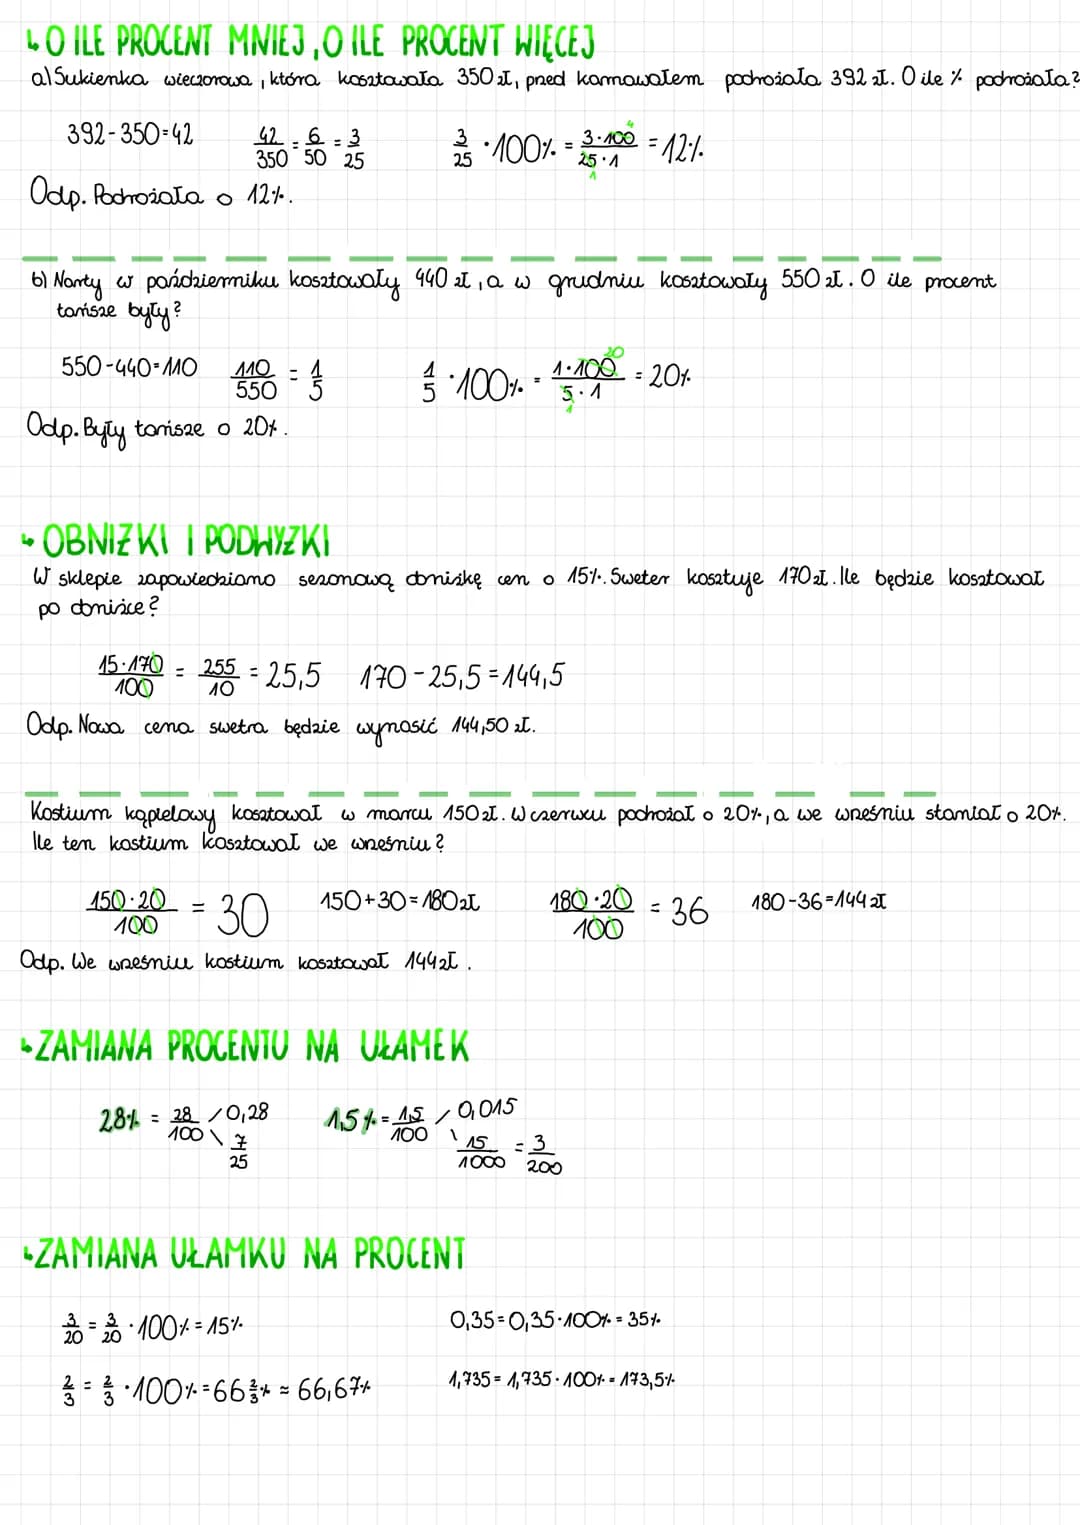 ↳ O ILE PROCENT MNIEJ, O ILE PROCENT WIĘCEJ
a) Sukienka wieczorowa, która kosztowała 350 zł, przed karnawałem podrożała 392 zł. O ile % podrożała?
392-350=42 42/350 = 6/50 = 3/25 3/25 · 100% = 3·100/25·1 = 12%
4
1
Odp. Podrożała o 12%.
b) Narty w październiku kosztowały 440 zł, a w grudniu kosztowały 550 zł. O ile procent
tańsze były?
550-440=110 110/550 = 1/5 1/5 · 100% = 1·100/5·1 = 20%
20
1
Odp. Były tańsze o 20%.
↳ OBNIŻKI I PODWYŻKI
W sklepie zapowiedziano sezonową obniżkę cen o 15%. Sweter kosztuje 170 zł. Ile będzie kosztował
po obniżce?
15·170/100 = 255/10 = 25,5 170-25,5=144,5
Odp. Nowa cena swetra będzie wynosić 144,50 zł.
Kostium kąpielowy kosztował w marcu 150 zł. W czerwcu podrożał o 20%, a we wrześniu staniał o 20%.
Ile ten kostium kosztował we wrześniu?
150·20/100 = 30 150+30=180 zł 180·20/100 = 36 180-36=144 zł
Odp. We wrześniu kostium kosztował 144 zł.
↳ ZAMIANA PROCENTU NA UŁAMEK
28% = 28/100 / 0,28 \ 7/25 1,5% = 1,5/100 / 0,015 \ 15/1000 = 3/200
↳ ZAMIANA UŁAMKU NA PROCENT
3/20 = 3/20 · 100% = 15% 0,35=0,35·100% = 35%
2/3 = 2/3 · 100% = 66 2/3% ≈ 66,67% 1,735 = 1,735·100% = 173,5%